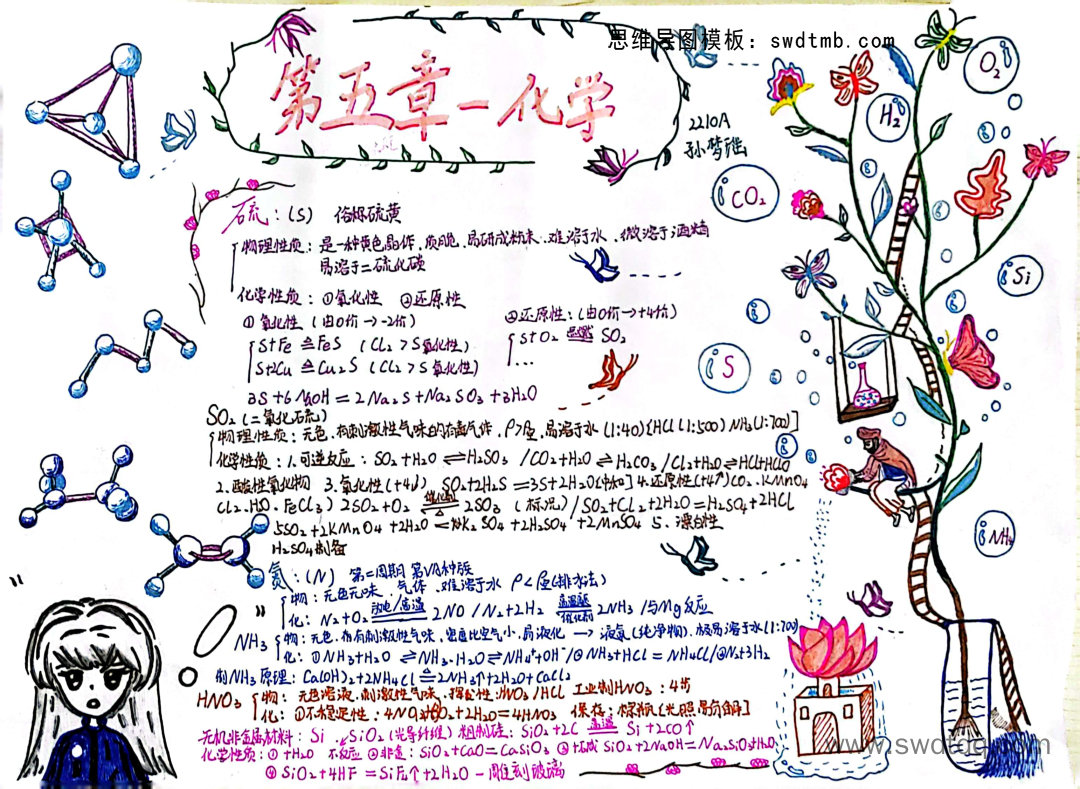 思维导图模板：swdtmb.com
第五章-化学
2210A
O₂
H₂
CO₂
Si
S
NH₃
硫：(S) 俗称硫黄
物理性质：是一种黄色晶体，质脆，易研成粉末，难溶于水，微溶于酒精
易溶于二硫化碳
化学性质：①氧化性 ②还原性
①氧化性（由0价→-2价）
S+Fe ≜ FeS （Cl₂>S氧化性）
S+2Cu ≜ Cu₂S （Cl₂>S氧化性）
②还原性：(由0价→+4价)
S+O₂ 点燃 SO₂
...
3S+6NaOH=2Na₂S+Na₂SO₃+3H₂O
SO₂(二氧化硫)
物理性质：无色，有刺激性气味的有毒气体，ρ>ρ空，易溶于水(1:40){HCl(1:500) NH₃(1:700)]
化学性质：1.可逆反应：SO₂+H₂O⇌H₂SO₃ /CO₂+H₂O⇌H₂CO₃/Cl₂+H₂O⇌HCl+HClO
2.酸性氧化物 3.氧化性(+4↓) SO₂+2H₂S=3S+2H₂O 4.还原性(+4↑)
2SO₂+O₂ 催化剂 △ 2SO₃ (标况)/SO₂+Cl₂+2H₂O=H₂SO₄+2HCl
5SO₂+2KMnO₄+2H₂O = K₂SO₄+2H₂SO₄+2MnSO₄ 5.漂白性
H₂SO₄制备
氮：(N) 第二周期第VA种族
物：无色无味，气体，难溶于水 ρ<ρ空(排水法)
化：N₂+O₂ 放电/高温 2NO /N₂+3H₂ 高温高压 催化剂 2NH₃/与Mg反应
NH₃
物：无色，有刺激性气味，密度比空气小，易液化→液氨(纯净物)，极易溶于水(1:700)
化：①NH₃+H₂O⇌NH₃·H₂O⇌NH₄⁺+OH⁻/②NH₃+HCl=NH₄Cl/
制NH₃原理：Ca(OH)₂+2NH₄Cl≜2NH₃↑+2H₂O+CaCl₂
HNO₃
物：无色溶液，刺激性气味，挥发性：HNO₃/HCl 工业制HNO₃：4步
化：①不稳定性：+2H₂O=4HNO₃ 保存：棕瓶[光照易分解]
无机非金属材料：Si SiO₂(光导纤维) 粗制硅：SiO₂+2C 高温 Si+2CO↑
化学性质：①+H₂O 不反应 ②SiO₂+CaO=CaSiO₃ ③SiO₂+2NaOH=Na₂SiO₃+H₂O
④SiO₂+4HF=SiF₄↑+2H₂O—雕刻玻璃